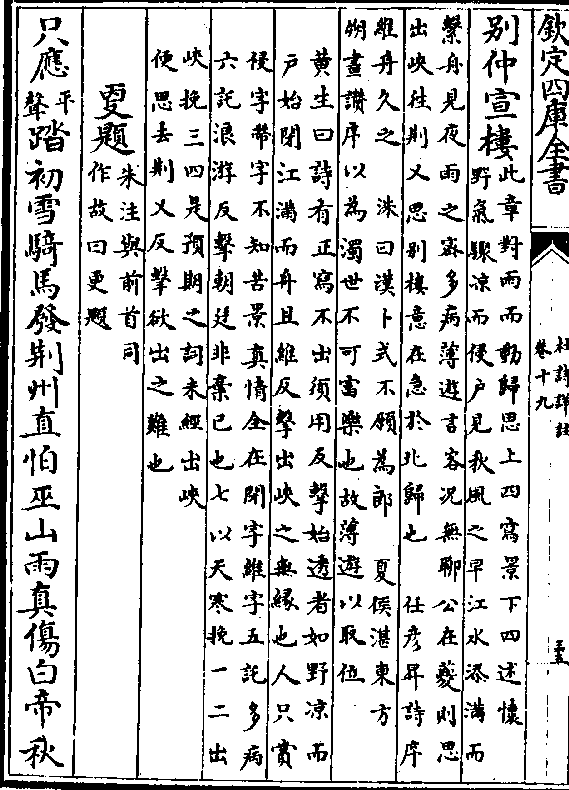 欽定四庫全書
杜詩詳註
卷十九
三五
別仲宣樓此章對雨而動歸思上四寫景下四述懷
野氣驟涼而侵戶見秋風之早江水添滿而
繫舟見夜雨之客多病薄遊言客況無聊公在夔則思
出峽往荆又思別樓意在急於北歸也 任彥昇詩序
維舟久之 洙曰漢卜式不願為郎 夏侯湛東方
朔畫讚序以為濁世不可富樂也故薄遊以取位
黄生曰詩有正寫不出須用反擊始透者如野凉而
戶始閉江滿而舟且維反擊出峽之無緣也人只賞
侵字帶字不知苦景真情全在閉字維字五託多病
六託浪游反擊朝廷非棄已也七以天寒挽一二出
峽挽三四是預期之詞未經出峽
便思去荆又反擊欲出之難也
更題朱注與前首同
作故曰更題
只應平聲踏初雪騎馬發荆州直怕巫山雨真傷白帝秋